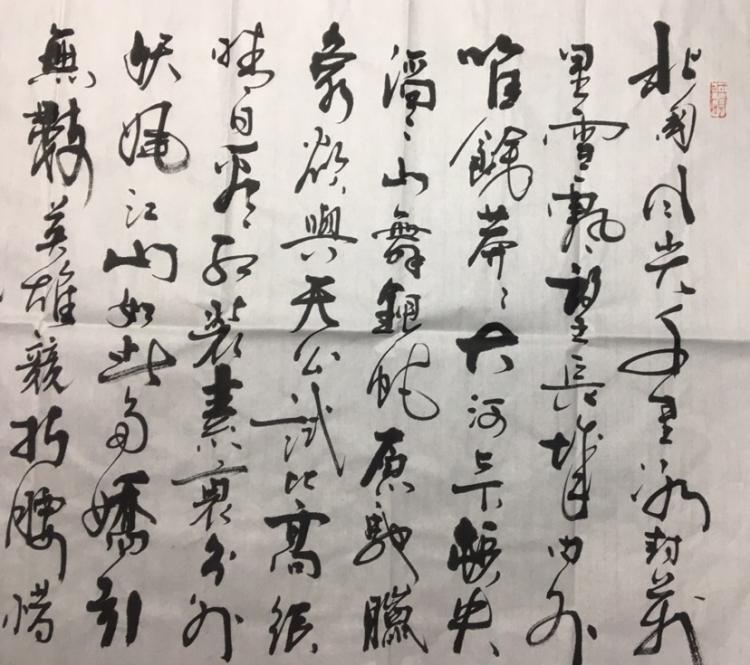 北國风光千里冰封萬
里雪飄望長城內外
唯餘莽々大河上下頓失
滔々山舞銀蛇原馳臘
象欲與天公試比高須
晴日看紅裝素裹分外
妖嬈江山如此多嬌引
無數英雄競折腰惜